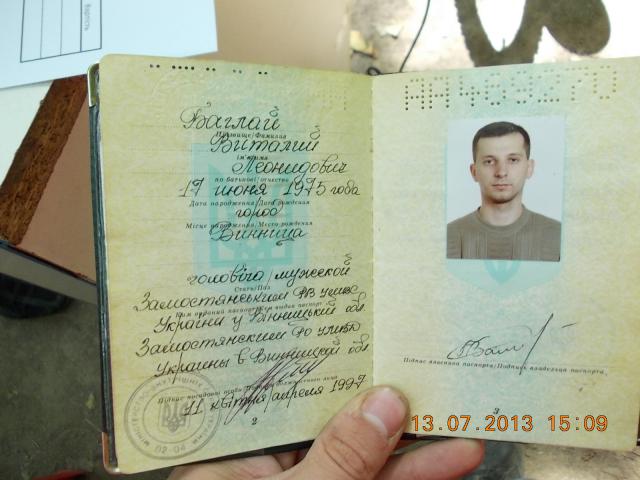 Вартість
АА 469270
Баглай
Прізвище/Фамилия
Виталий
ім'я/имя
Леонидович
по батькові/отчество
17 июня 1975 года
Дата народження/Дата рождения
город
Місце народження/Место рождения
Винница
чоловіча/мужской
Стать/Пол
Замостянським РВ УМВС
Ким виданий паспорт/Кем выдан паспорт
України у Вінницькій обл.
Замостянским РО УМВД
Украины в Винницкой обл.
11 квітня/апреля 1997
02-04
2
Підпис власника паспорта/Подпись владельца паспорта
3
13.07.2013 15:09